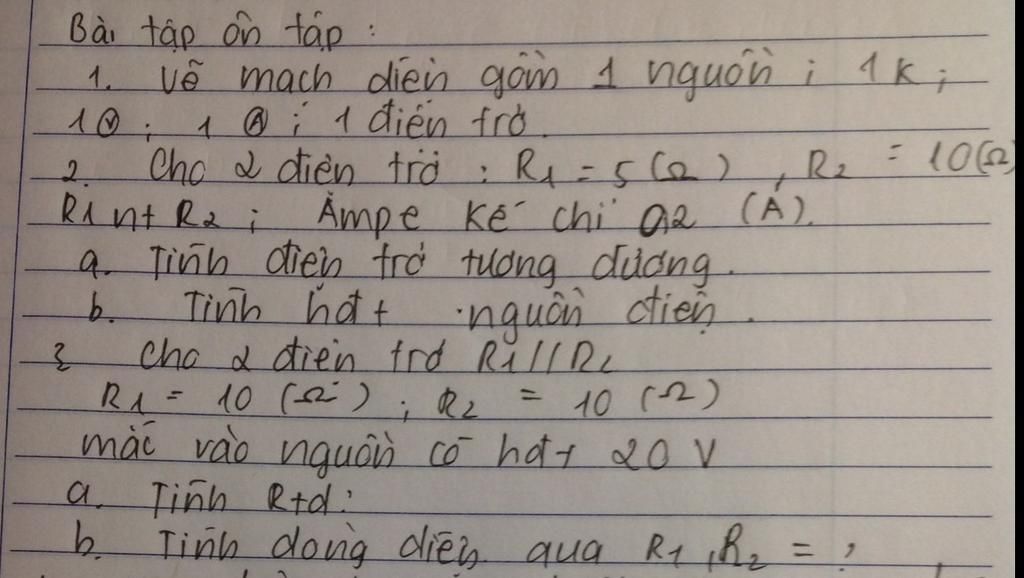 Bài tập ôn tập :
1. Vẽ mạch điện gồm 1 nguồn ; 1 K ;
1 Ⓥ ; 1 Ⓐ ; 1 điện trở.
2. Cho 2 điện trở : R1 = 5 (Ω) , R2 = 10 (Ω)
R1 nt R2 ; Ampe kế chỉ 0,2 (A).
a. Tính điện trở tương đương.
b. Tính hđt nguồn điện.
3 Cho 2 điện trở R1 // R2
R1 = 10 (Ω) ; R2 = 10 (Ω)
mắc vào nguồn có hđt 20 V
a. Tính Rtđ :
b. Tính dòng điện qua R1 , R2 = ?